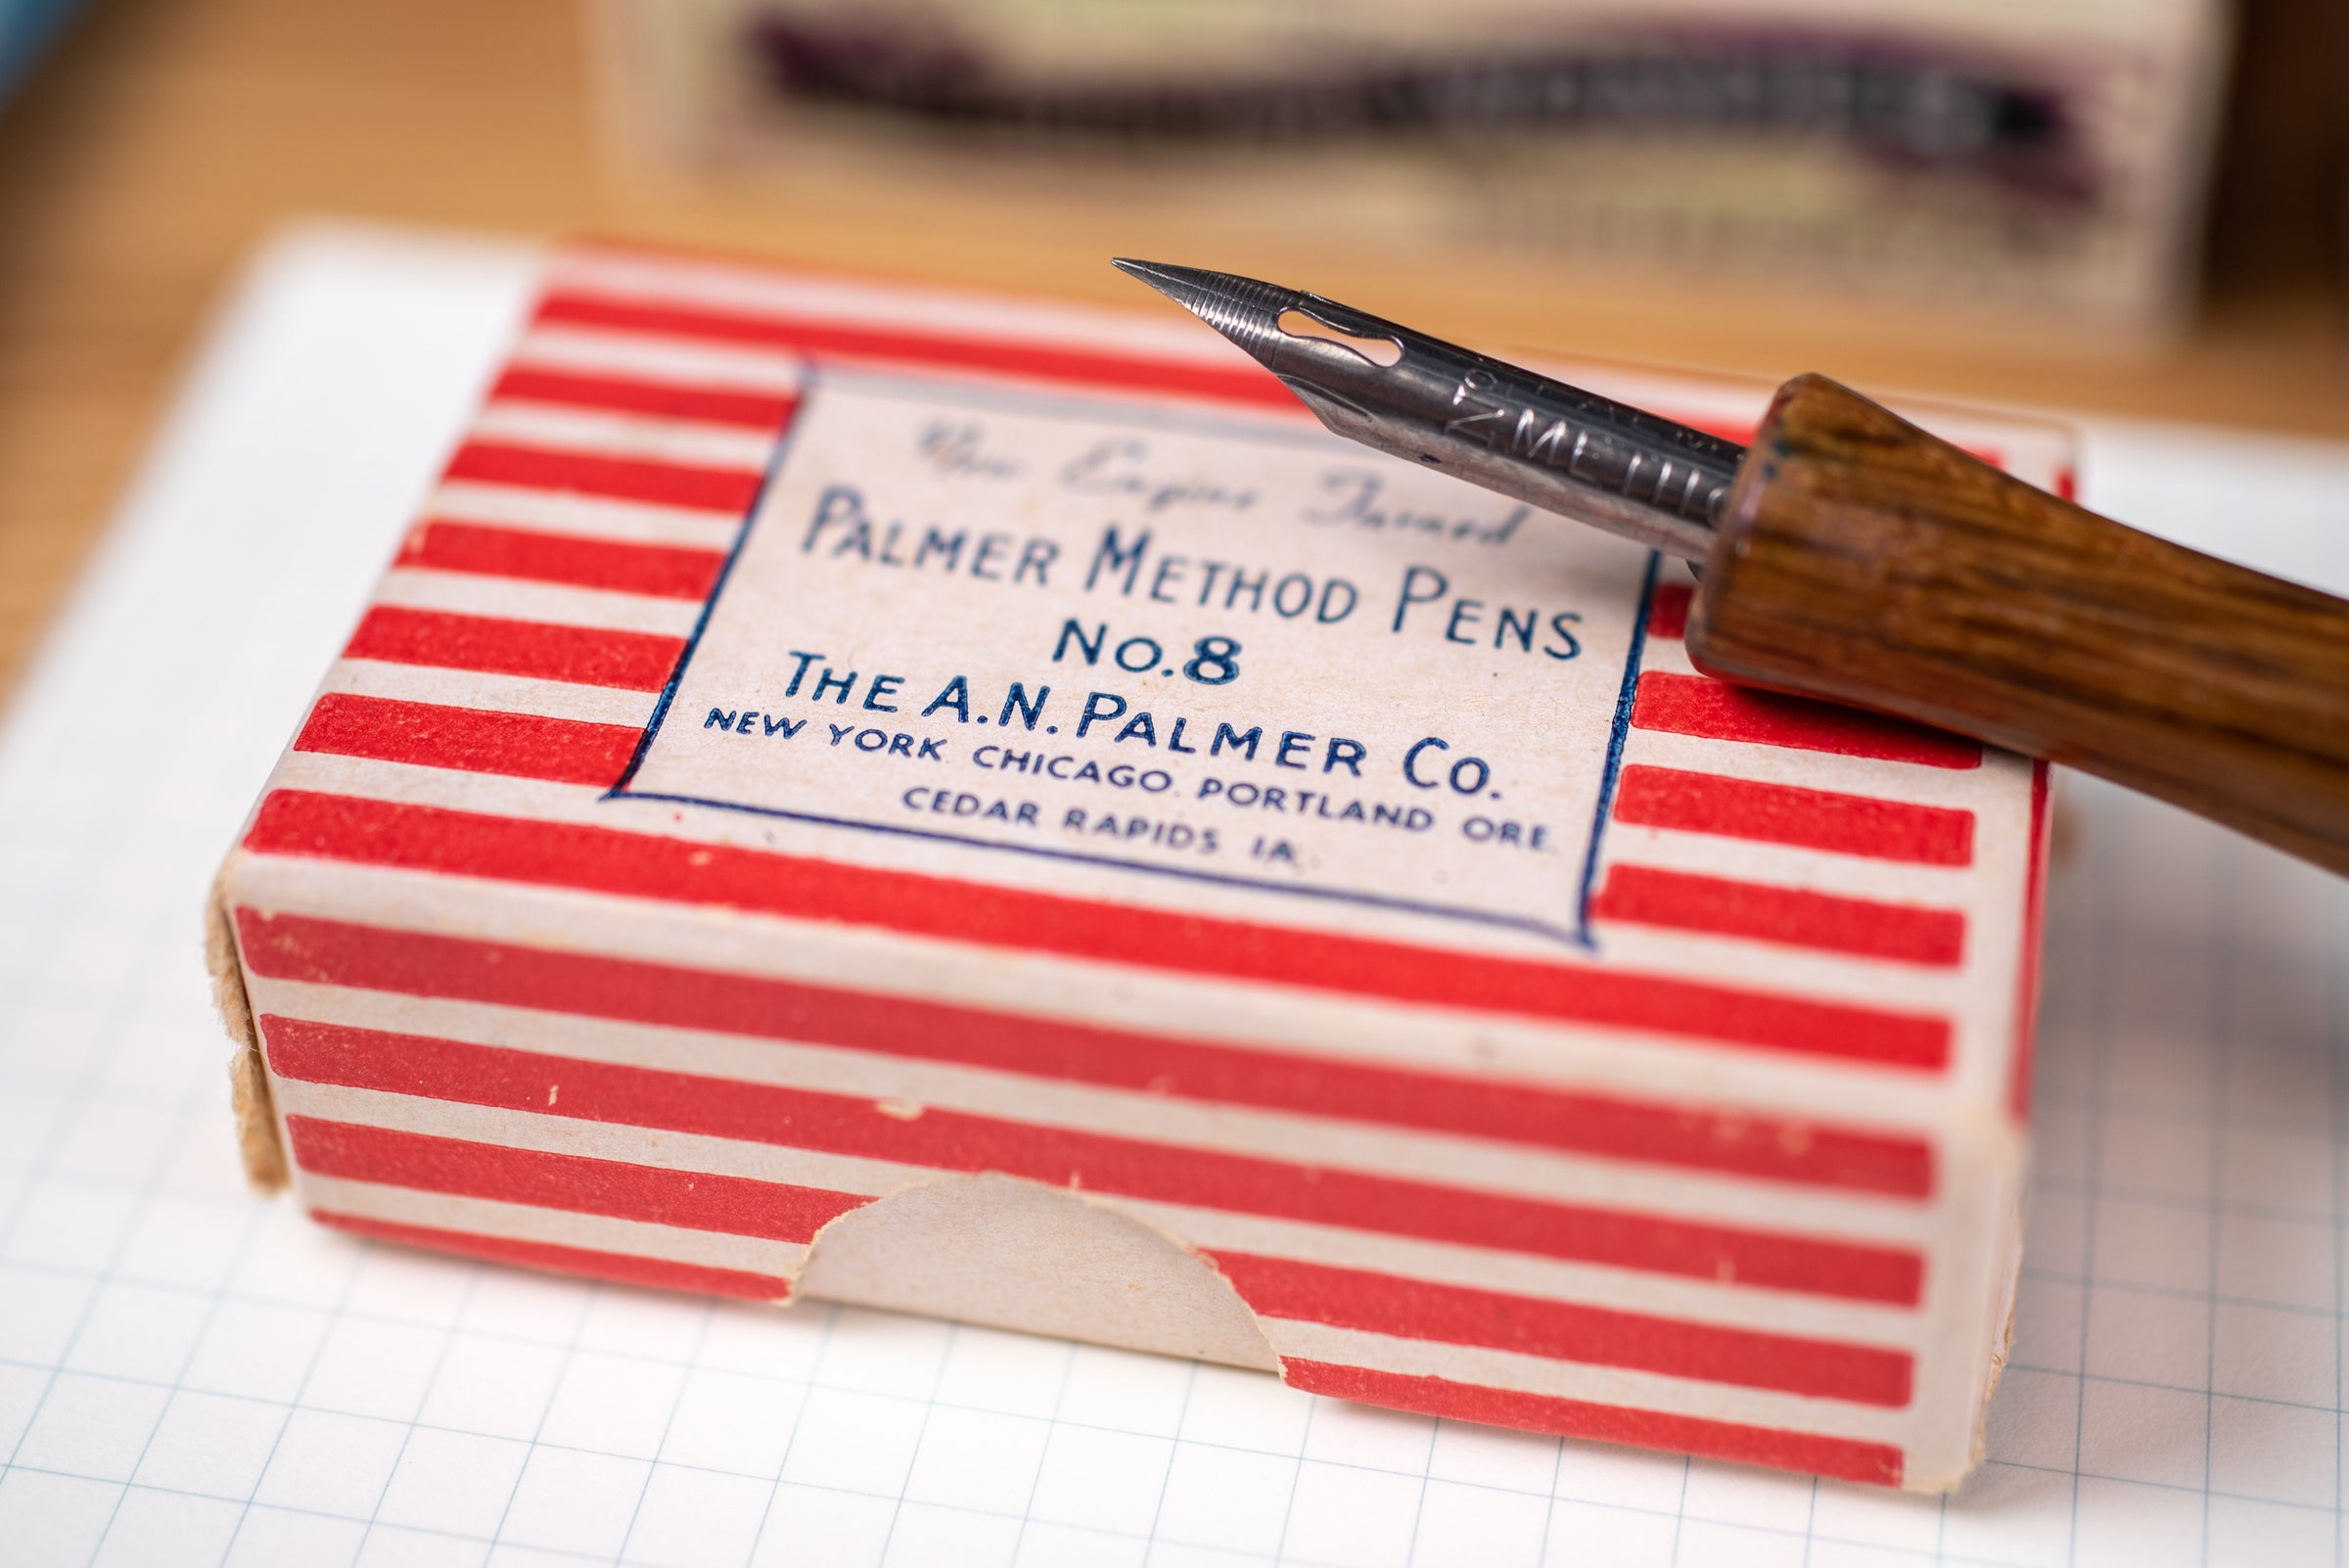 Engine Turned
PALMER METHOD PENS
No.8
THE A.N. PALMER CO.
NEW YORK. CHICAGO. PORTLAND ORE.
CEDAR RAPIDS IA.
METHO